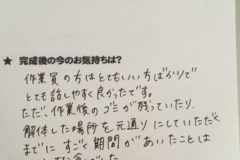 ★ 完成後の今のお気持ちは？
作業員の方はとてもいい方ばかりで
とても話しやすく良かったです。
ただ、作業後のゴミが残っていたり、
解体した場所を元通りにしていただく
までにすごく期間があいたことは